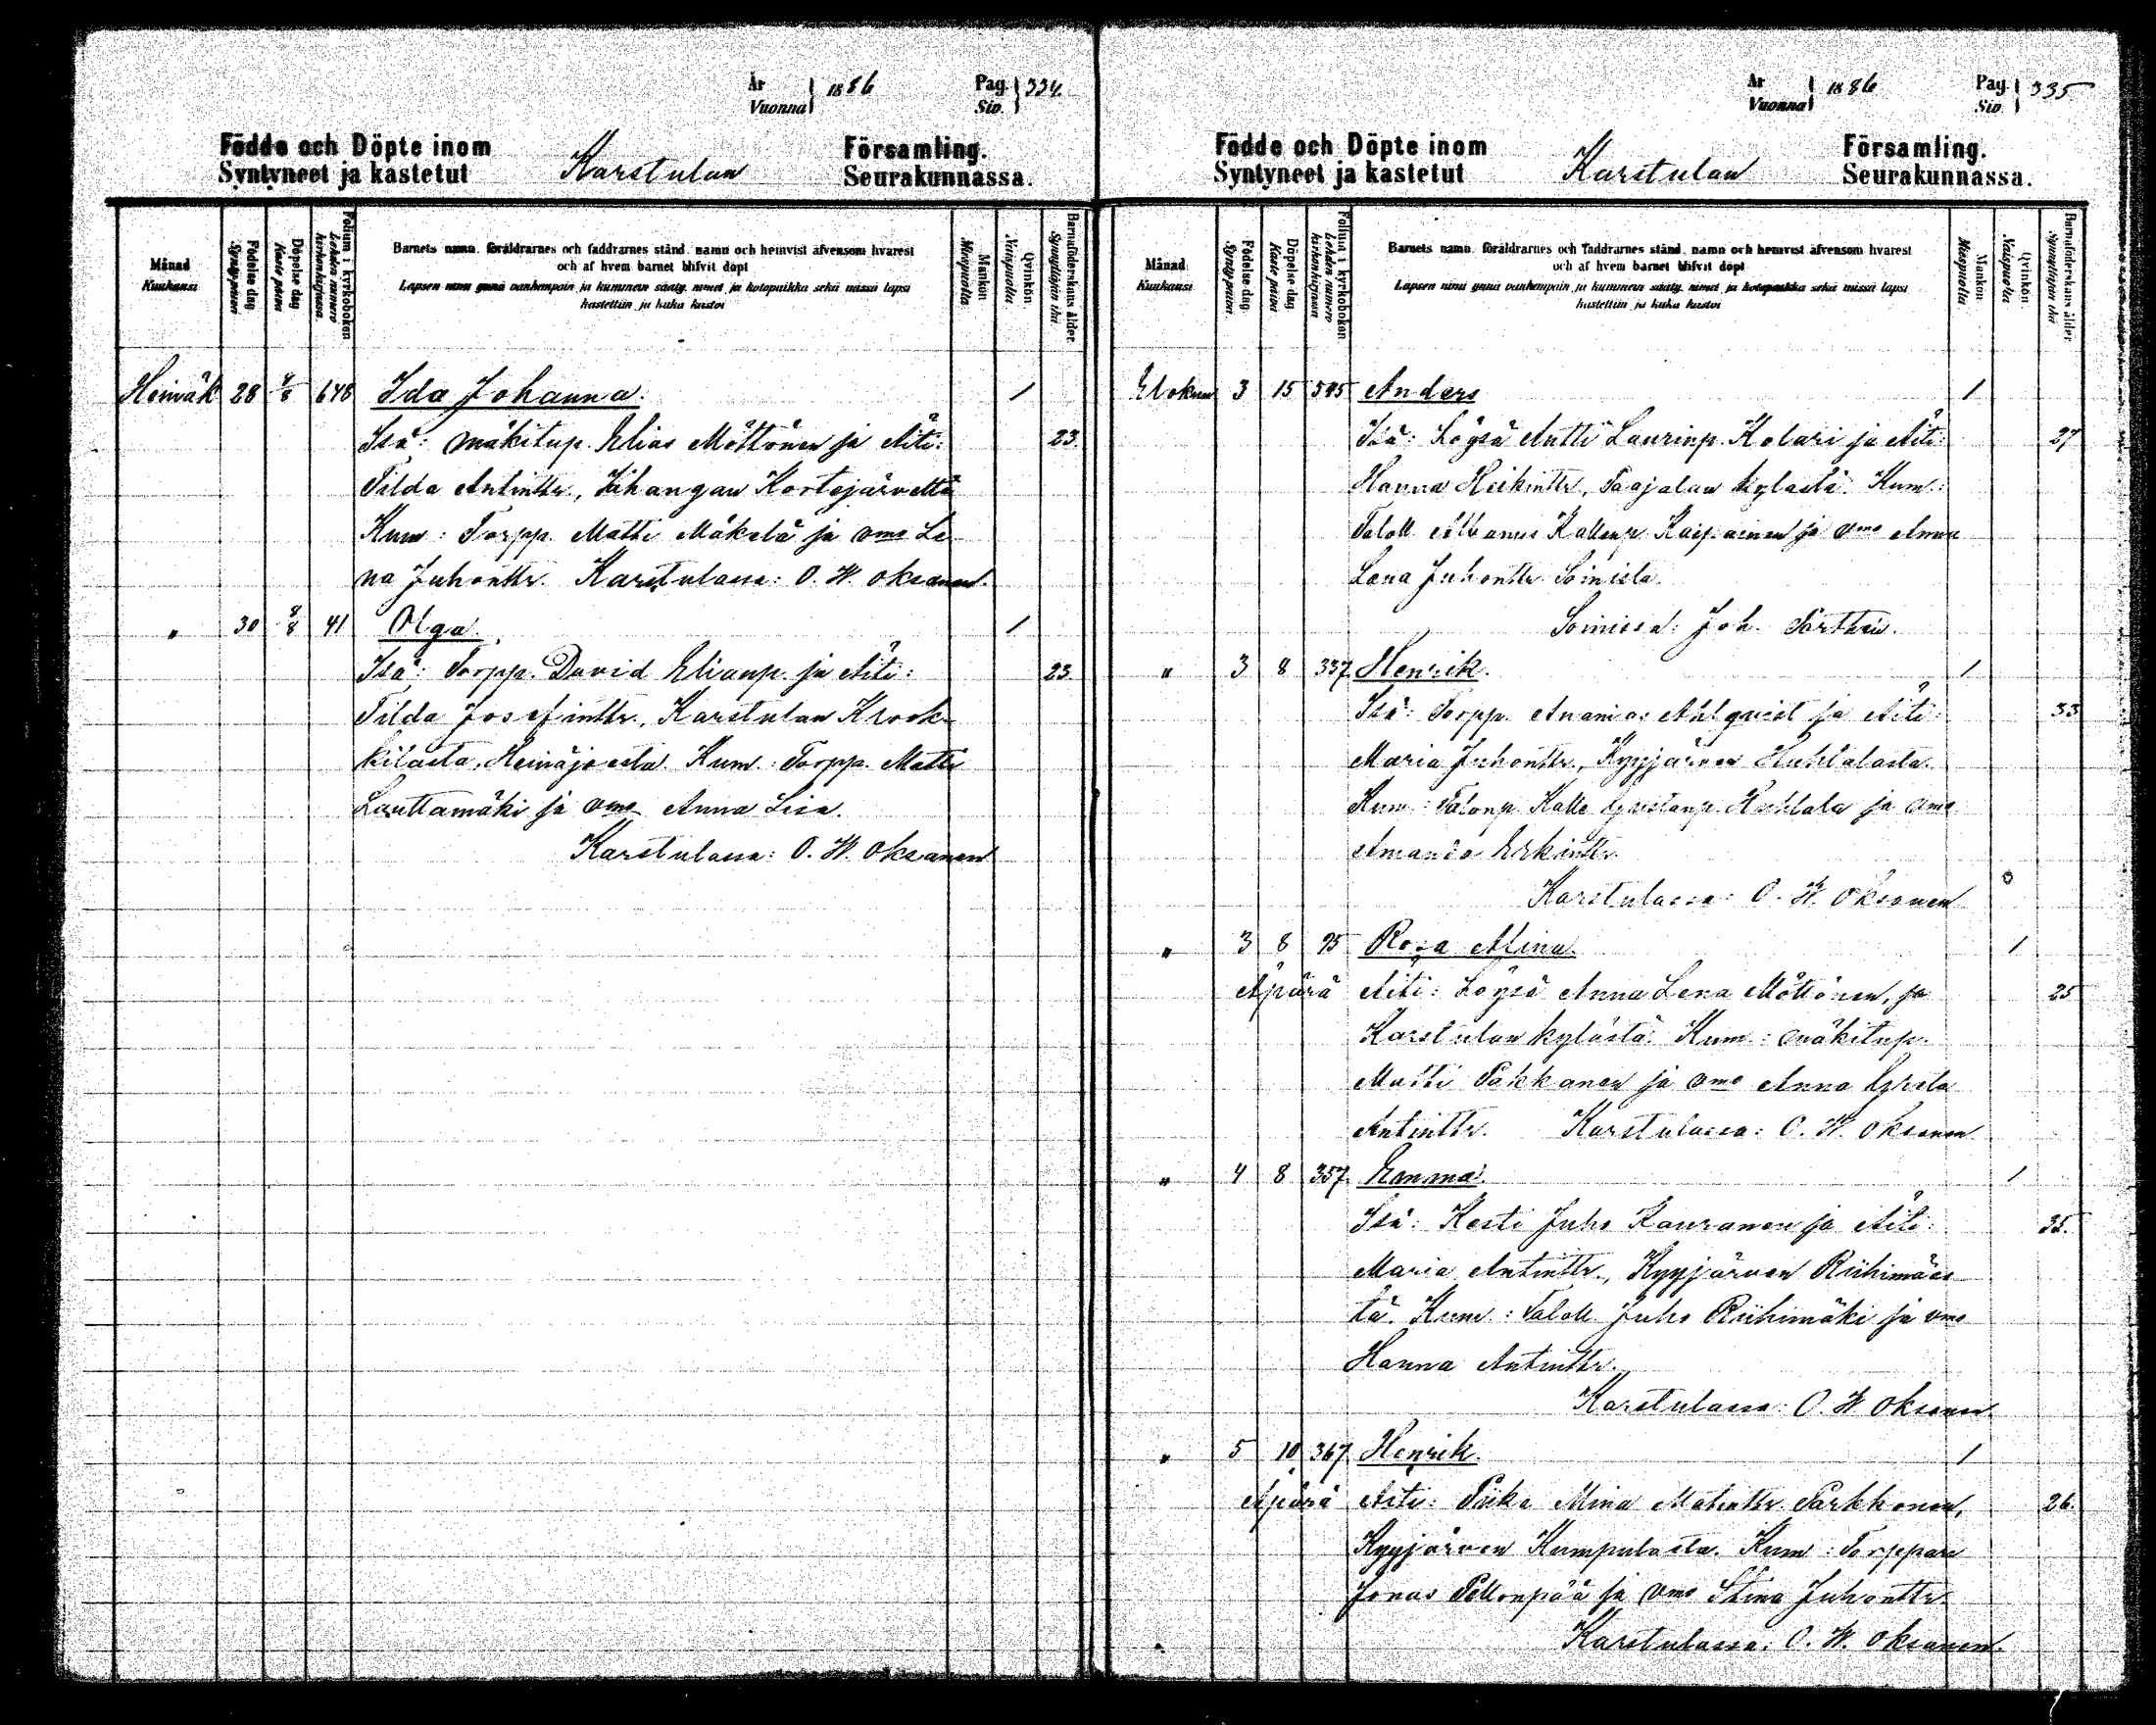 År
Vuonna } 1886
Pag.
Siv. } 334.
Födde och Döpte inom
Syntyneet ja kastetut
Karstulan
Församling.
Seurakunnassa.
Månad
Kuukausi
Födelse dag
Syntypäivä
Döpelse dag
Kaste päivä
Folium i kyrkoboken
Lehden numero
kirkonkirjassa
Barnets namn, föräldrarnes och faddrarnes stånd, namn och hemvist äfvensom hvarest
och af hvem barnet blifvit döpt
Lapsen nimi ynnä vanhempain ja kummein sääty, nimet ja kotopaikka sekä missä lapsi
kastettiin ja kuka kastoi
Mankön
Miespuolta
Qvinkön
Naispuolta
Barnaföderskans ålder.
Synnyttäjän ikä
Heinäk 28 4/8 648 Ida Johanna. 1
Isä: Mäkitup. Elias Möttönen ja Äiti: 23.
Tilda Antintr., Vahangan Kortejärveltä
Kum: Torpp. Matti Mäkelä ja vmo Le
na Juhontr. Karstulassa: O. W. Oksanen.
" 30 8/8 41 Olga. 1
Isä: Torpp. David Eliaup. ja Äiti: 23
Tilda Josefintr., Karstulan Krook-
kilasta, Heinäjoesta. Kum.: Torpp. Matti
Lauttamäki ja vmo Anna Lisa.
Karstulassa: O. W. Oksanen
År
Vuonna } 1886
Pag.
Siv. } 335
Födde och Döpte inom
Syntyneet ja kastetut
Karstulan
Församling.
Seurakunnassa.
Månad
Kuukausi
Födelse dag
Syntypäivä
Döpelse dag
Kaste päivä
Folium i kyrkoboken
Lehden numero
kirkonkirjassa
Barnets namn, föräldrarnes och faddrarnes stånd, namn och hemvist äfvensom hvarest
och af hvem barnet blifvit döpt
Lapsen nimi ynnä vanhempain ja kummein sääty, nimet ja kotopaikka sekä missä lapsi
kastettiin ja kuka kastoi
Mankön
Miespuolta
Qvinkön
Naispuolta
Barnaföderskans ålder.
Synnyttäjän ikä
Elokuu 3 15 545 Anders 1
Isä: Löysä Antti Laurinp. Kolari ja Äiti: 27
Hanna Heikintr, Paajalan kylästä. Kum.:
Taloll Albanus Kallenp. ja vmo Anna
Lena Juhontr Soinista.
Soinissa: Joh.
" 3 8 337. Henrik. 1
Isä: Torpp. Ananias Ahlqvist ja Äiti: 33
Maria Juhontr., Kyyjärven Huhtalasta.
Kum.: Talonp. Kalle Gustanp. Huhtala ja vmo
Amanda Erkintr.
Karstulassa: O. W. Oksanen
" 3 8 95 Rosa Alina. 1
Äpärä Äiti: Löysä Anna Lena Möttönen, ja 25
Karstulan kylästä: Kum.: mäkitup.
Matti Pakkanen ja vmo Anna Greta
Antintr. Karstulassa: O. W. Oksanen
" 4 8 357. Emma. 1
Isä: Kesti Juho Kauranen ja Äiti: 35.
Maria Antintr., Kyyjärven Riihimäes
tä. Kum.: Taloll Juho Riihimäki ja vmo
Hanna Antintr.
Karstulassa: O. W. Oksanen.
" 5 10 367. Henrik. 1
Äpärä Äiti: Piika Mina Matintr Parkkonen, 26.
Kyyjärven Kumpulasta. Kum: Torppari
Jonas Peltonpää ja vmo Stina Juhontr.
Karstulassa: O. W. Oksanen.